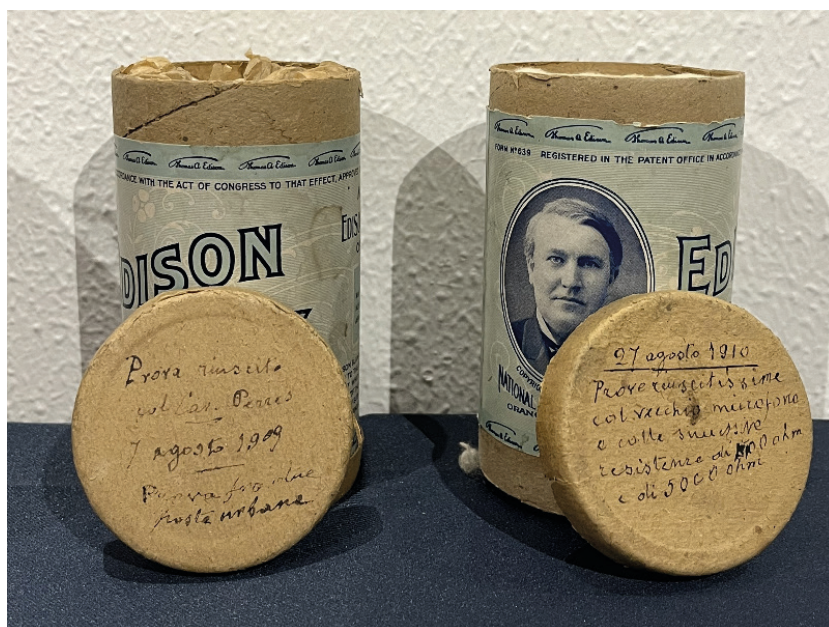 Thomas A. Edison Thomas A. Edison Thomas A. Edison
ACCORDANCE WITH THE ACT OF CONGRESS TO THAT EFFECT, APPROV
EDISON
EDIS
Prova riuscita
7 agosto 1909
Prova fra due
posti urbane
Thomas A. Edison Thomas A. Edison Thomas A. Edison
FORM Nº 639 REGISTERED IN THE PATENT OFFICE IN ACCORDANC
ED
COPYRIG
NATIONAL
ORANG
27 agosto 1910
Prove riuscitissime
col vecchio microfono
e colle
resistenze di 500 ohm
e di 5000 ohm